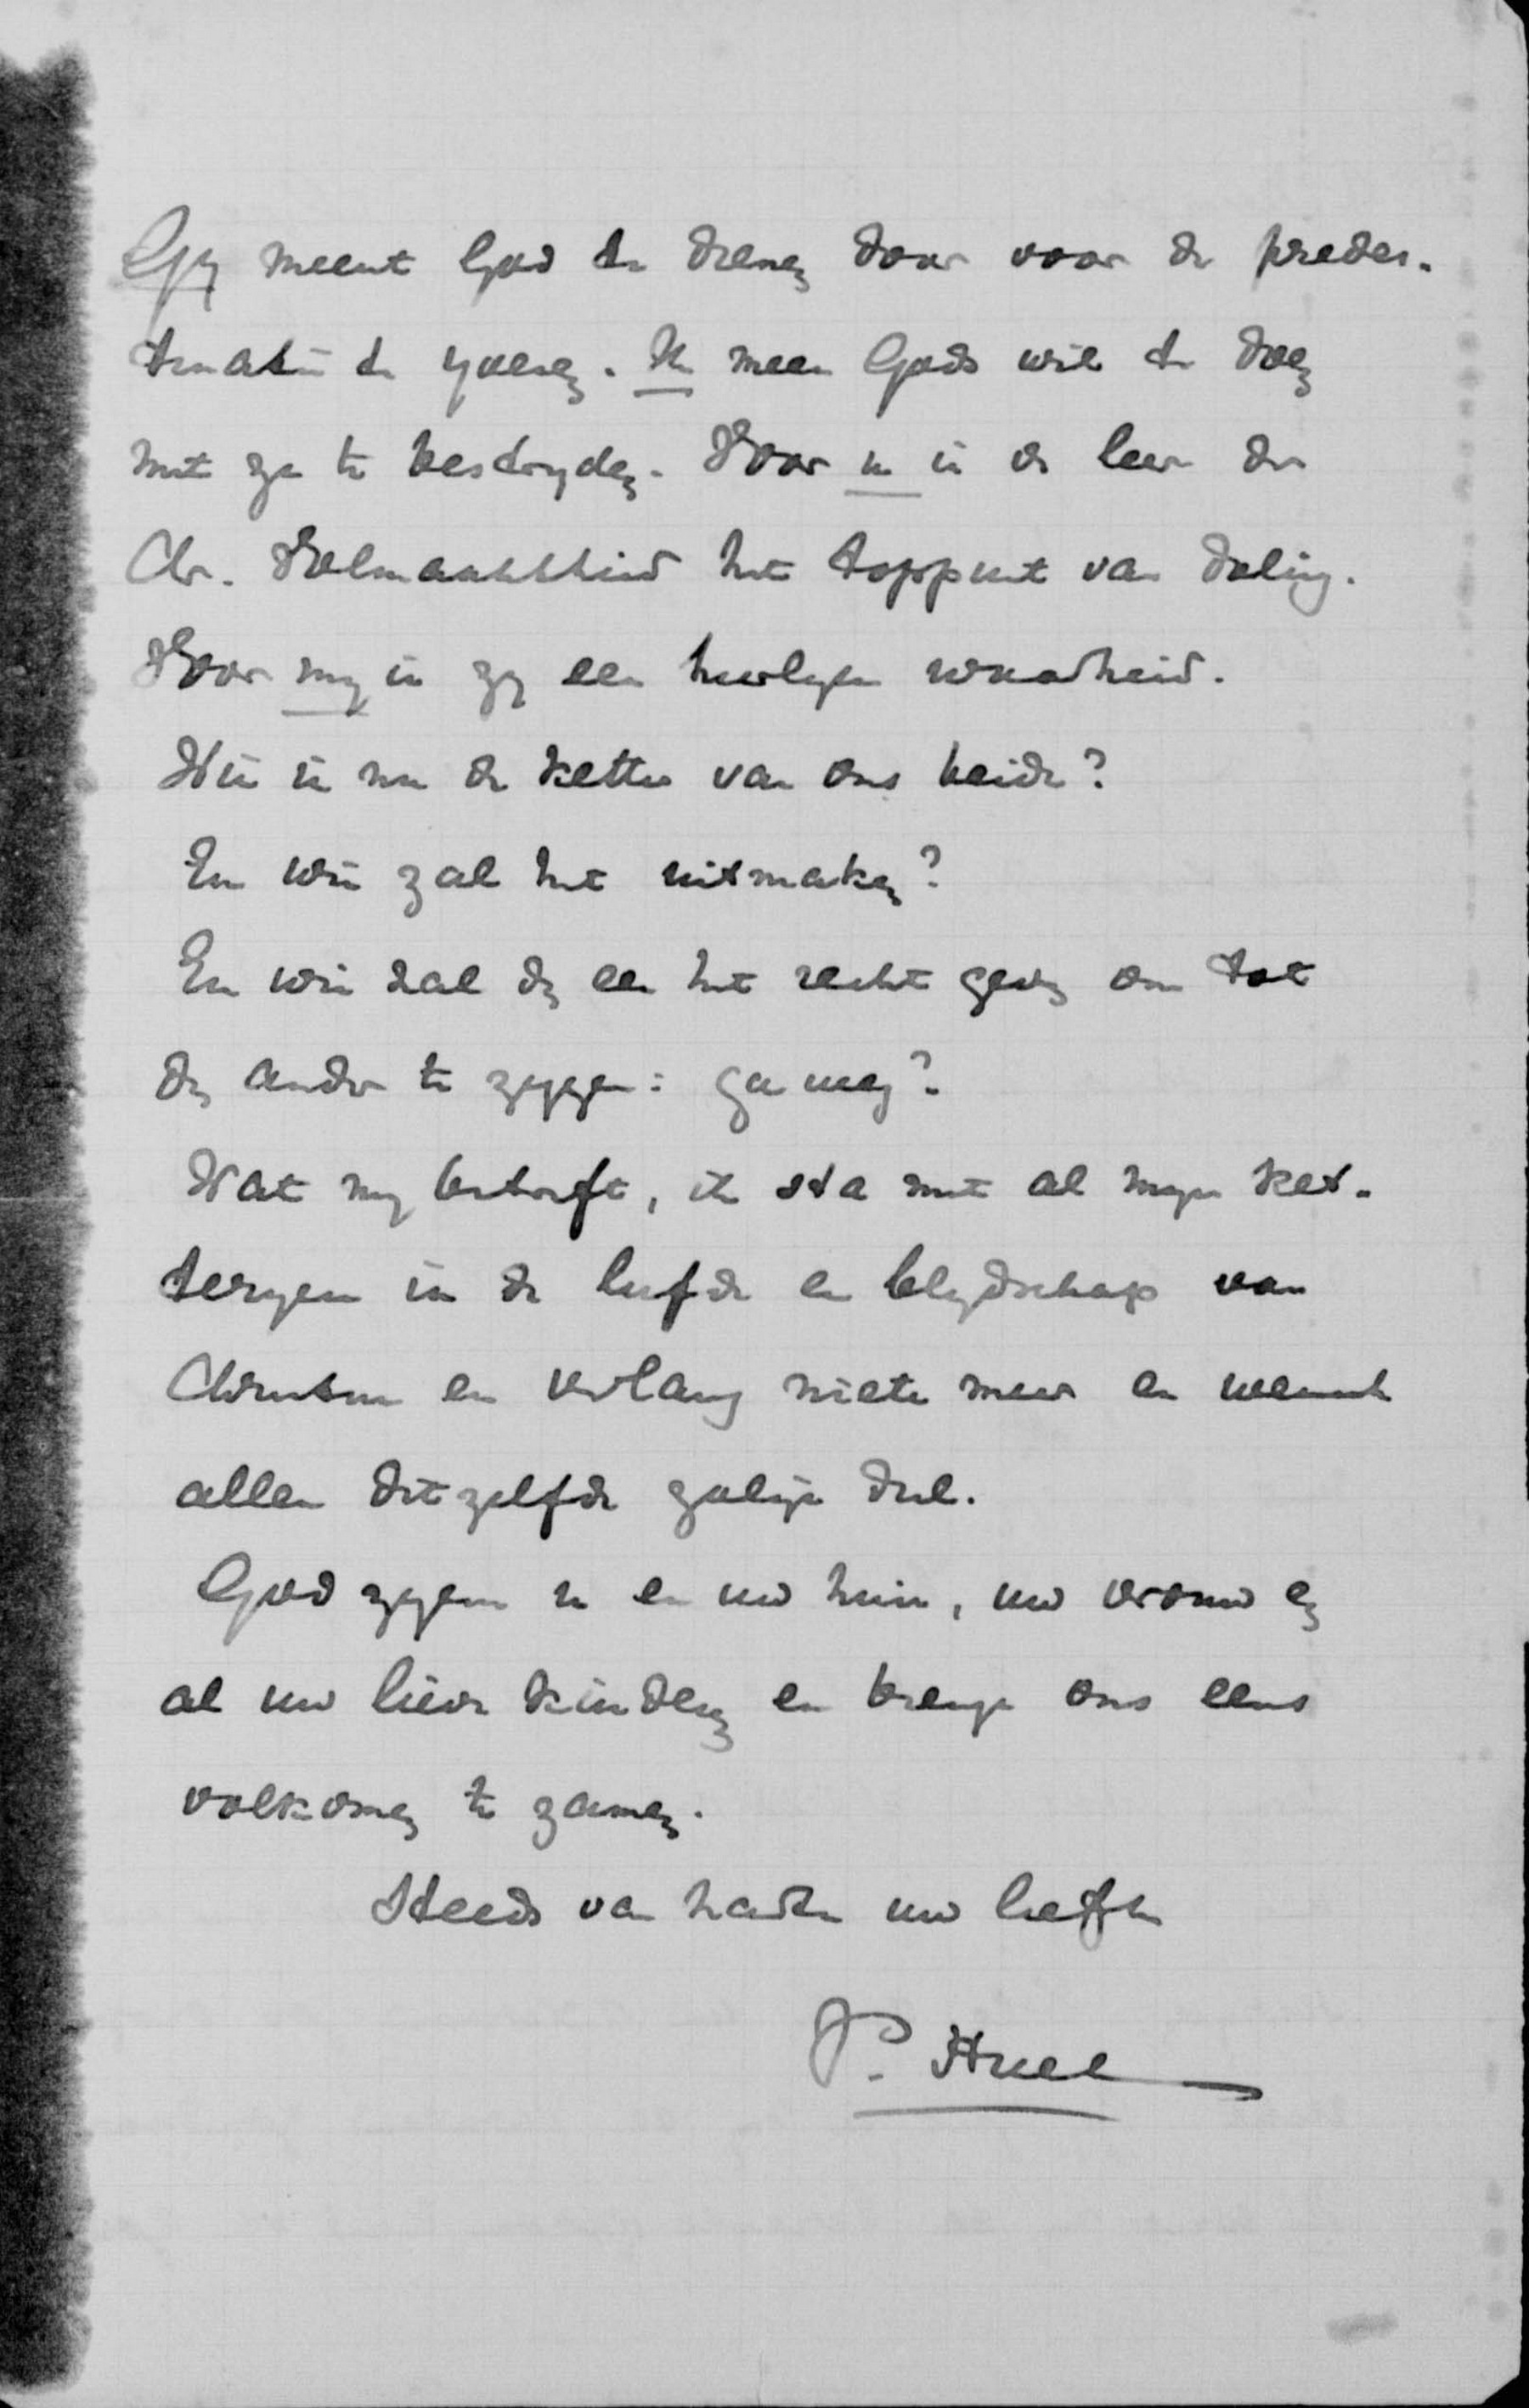 Gy meent God te dienen door voor de predes-
tinatie te yveren. Ik meen Gods wil te doen
met ze te bestryden. Voor u is de leer der
Chr. Volmaaktheid het toppunt van doling.
Voor my is zy een heerlyke waarheid.
Wie is nu de ketter van ons beide?
En wie zal het uitmaken?
En wie zal den een het recht geven om tot
den ander te zeggen: ga weg?
Wat my betreft, ik sta met al myn ket-
teryen in de liefde en blydschap van
Christus en verlang niets meer en wensch
allen ditzelfde zalige deel.
God zegene u en uw huis, uw vrouw en
al uw lieve kinderen en brenge ons eens
volkomen te zamen.
Steeds van harte uw liefh
P. Huet